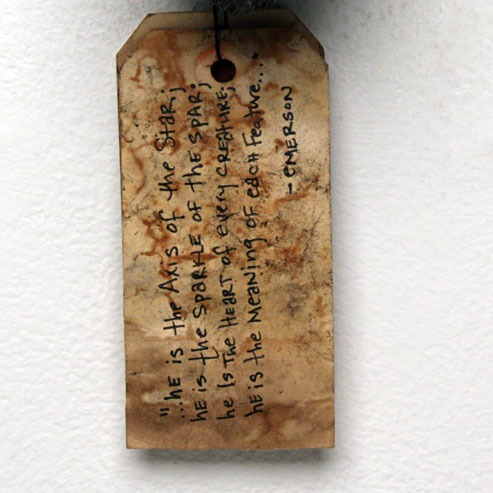 "...hE is the Axis of the Star;
hE is the SPARKLE OF THE SPAR;
he Is The HEART of every CREATURE;
hE is the MEANING OF EACH FEATURE...."
- EMERSON